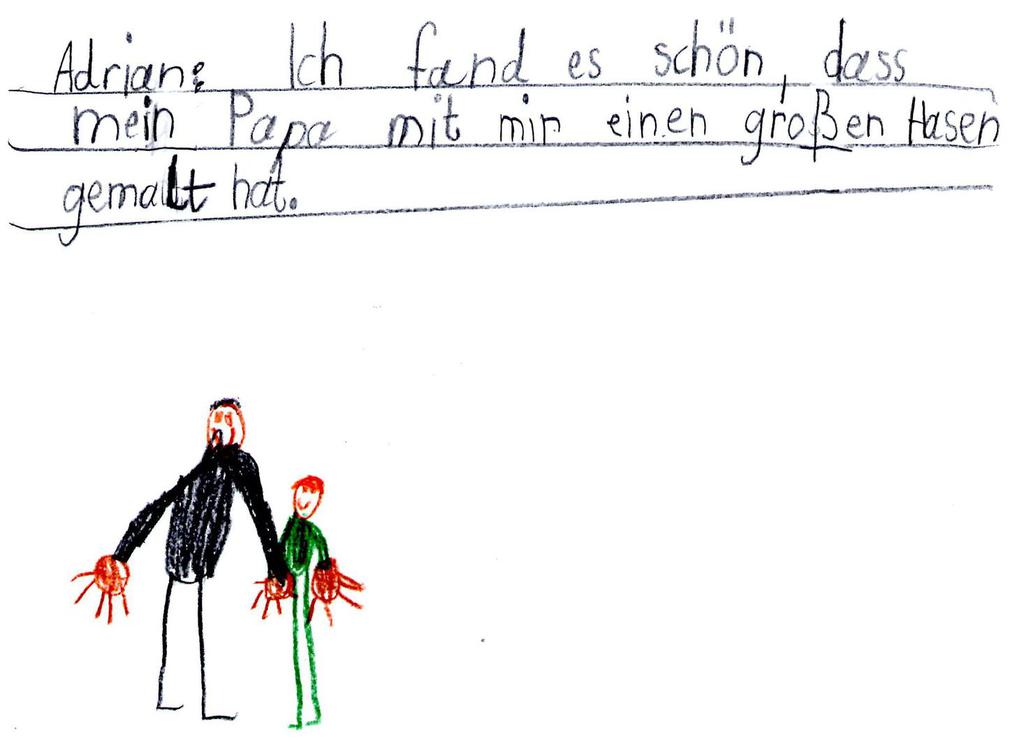 Adrian: Ich fand es schön, dass
mein Papa mit mir einen großen Hasen
gemalt hat.